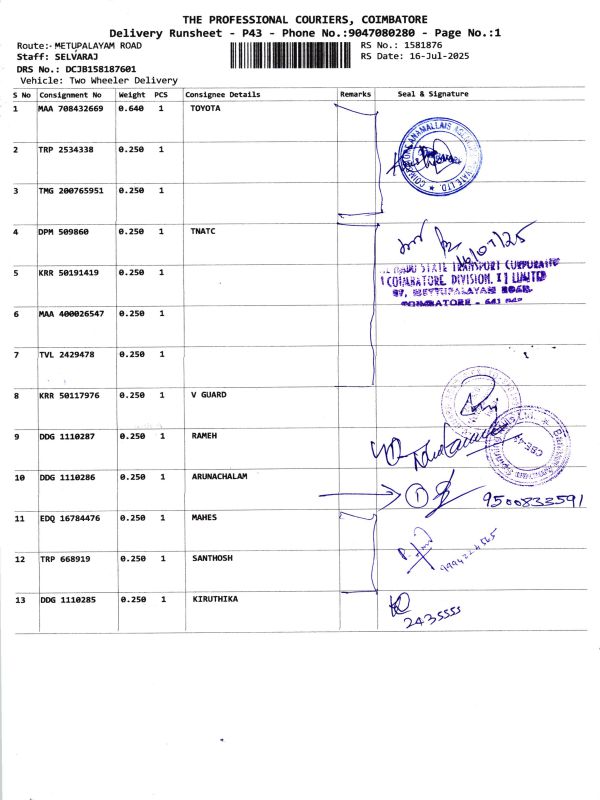 THE PROFESSIONAL COURIERS, COIMBATORE
Delivery Runsheet - P43 - Phone No.:9047080280 - Page No.:1
Route:- METUPALAYAM ROAD RS No.: 1581876
Staff: SELVARAJ RS Date: 16-Jul-2025
DRS No.: DCJB158187601
Vehicle: Two Wheeler Delivery
S No Consignment No Weight PCS Consignee Details Remarks Seal & Signature
1 MAA 708432669 0.640 1 TOYOTA
2 TRP 2534338 0.250 1
3 TMG 200765951 0.250 1
4 DPM 509860 0.250 1 TNATC
16/07/25
5 KRR 50191419 0.250 1
STATE TRANSPORT CORPORATIO
COIMBATORE, DIVISION, I ] LIMITED
METTUPALAYAM ROAD.
COIMBATORE - 641
6 MAA 400026547 0.250 1
7 TVL 2429478 0.250 1
8 KRR 50117976 0.250 1 V GUARD
9 DDG 1110287 0.250 1 RAMEH
CBE-43
10 DDG 1110286 0.250 1 ARUNACHALAM
1 9500833591
11 EDQ 16784476 0.250 1 MAHES
12 TRP 668919 0.250 1 SANTHOSH
13 DDG 1110285 0.250 1 KIRUTHIKA
2435555